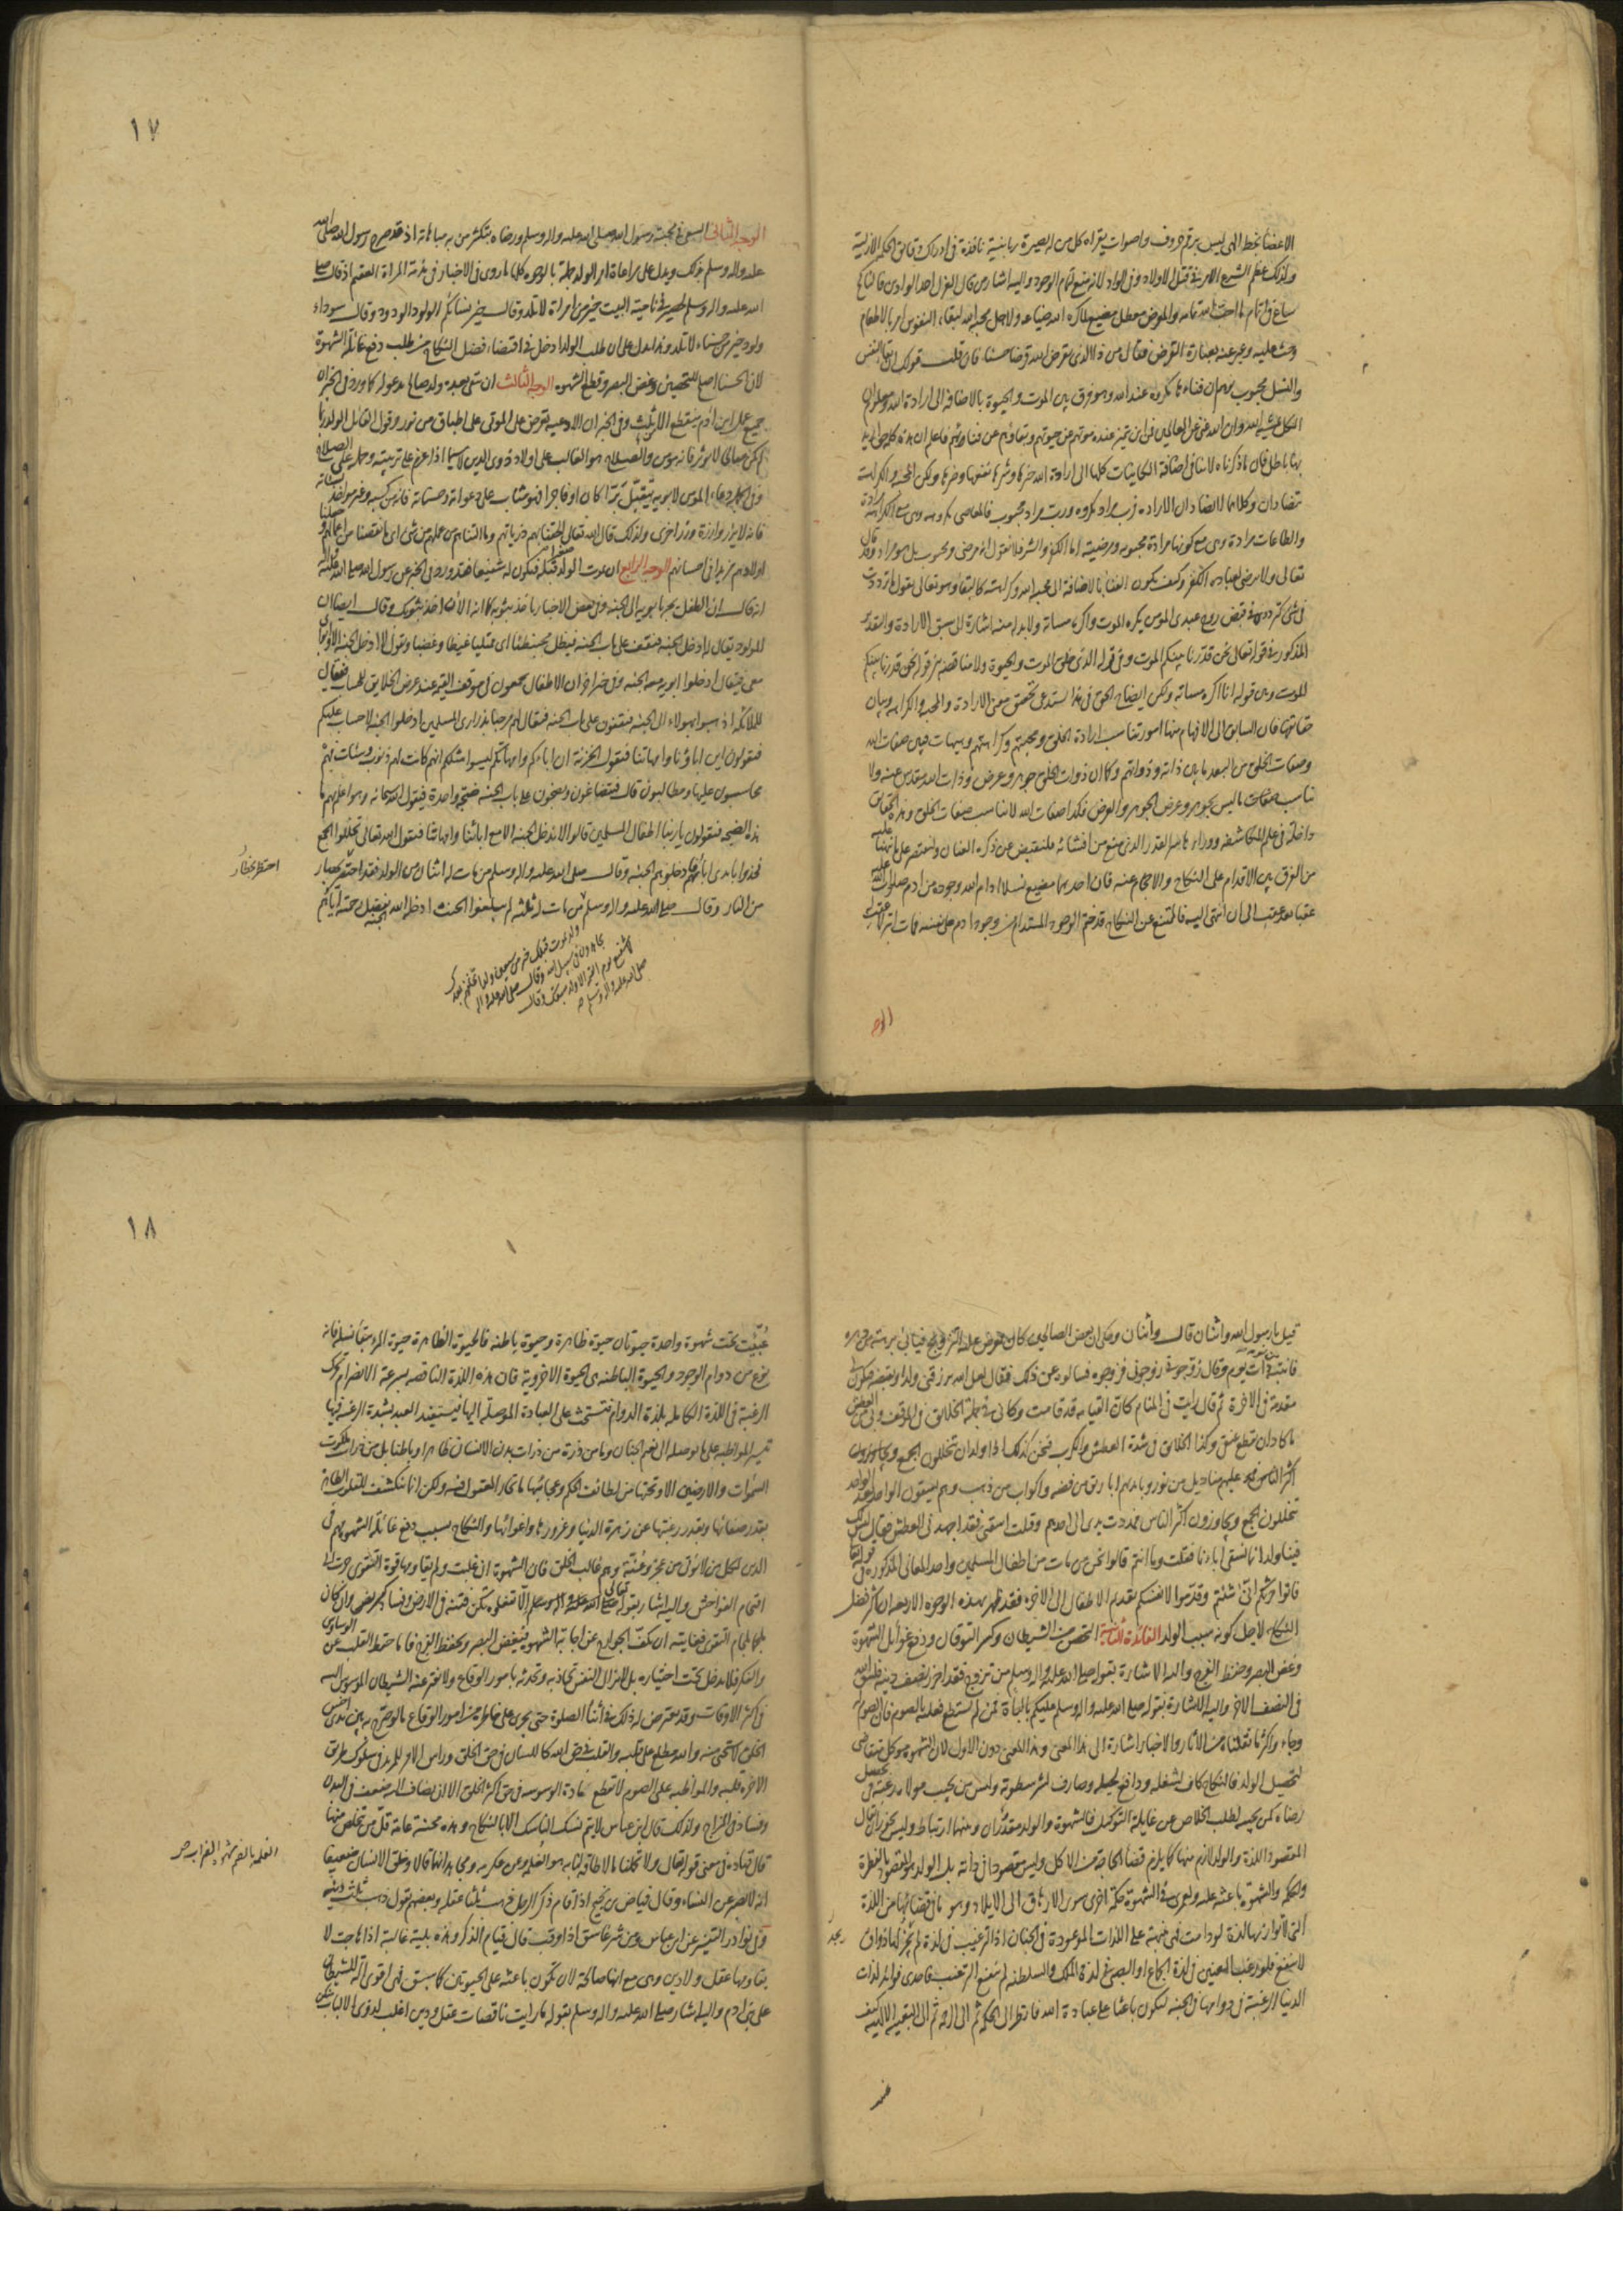 الاعضاء بخط الهى ليس برقم حروف واصوات يقراه كل من له بصيرة ربانية نافذة فى ادراك دقائق الحكم الازلية
ولذلك عظم الشرع الامر فى قتل الاولاد وفى الواد لانه منع تمام الوجود واليه اشار من قال العزل احد الوادين فالناكح
ساع فى اتمام ما احب الله تمامه والمعرض معطل مضيع لما كره الله ضياعه ولاجل محبة الله لبقاء النفوس امر بالاطعام
وحث عليه وعبر عنه بعبارة القرض فقال من ذا الذى يقرض الله قرضا حسنا فان قلت قولك ان بقاء النفس
والنسل محبوب يوهم ان فناءها مكروه عند الله وهو فرق بين الموت والحيوة بالاضافة الى ارادة الله ومعلوم ان
الكل بمشية الله وان الله غنى عن العالمين فمن اين يتميز عنده موتهم عن حيوتهم وبقاؤهم عن فنائهم فاعلم ان هذه كلمة حق اريد
بها باطل فان ما ذكرناه لا ينافى اضافة الكاينات كلها الى ارادة الله خيرها وشرها نفعها وضرها ولكن المحبة والكراهة
تتضادان وكلاهما لا يضادان الارادة فرب مراد مكروه ورب مراد محبوب فالمعاصى مكروهة وهى مع الكراهة مرادة
والطاعات مرادة وهى مع كونها مرادة محبوبة ومرضية اما الكفر والشر فلا نقول انه مرضى ومحبوب بل هو مراد وقد قال
تعالى ولا يرضى لعباده الكفر وكيف يكون الفناء بالاضافة الى محبة الله وكراهته كالبقاء وهو تعالى يقول ما ترددت
فى شئ كترددى فى قبض روح عبدى المومن يكره الموت واكره مساته ولا بد له منه اشارة الى سبق الارادة والقدر
المذكور فى قوله تعالى نحن قدرنا بينكم الموت وفى قوله الذى خلق الموت والحيوة ولا مناقضة بين قوله نحن قدرنا بينكم
الموت وبين قوله انا اكره مساته ولكن ايضاح الحق فى هذا يستدعى تحقيق معنى الارادة والمحبة والكراهة وبيان
حقائقها فان السابق الى الافهام منها امور تناسب ارادة الخلق ومحبتهم وكراهتهم وهيهات فبين صفات الله
وصفات الخلق من البعد ما بين ذاته وذواتهم وكما ان ذوات الخلق جوهر وعرض وذات الله مقدس عنه ولا
يناسب ما ليس بجوهر وعرض الجوهر والعرض فكذا صفات الله لا تناسب صفات الخلق وهذه الحقائق
داخلة فى علم المكاشفة ووراءها سر القدر الذى منع من افشائه فلنقبض عن ذكره العنان ولنقتصر على ما نبهنا عليه
من الفرق بين الاقدام على النكاح والاحجام عنه فان احدهما مضيع نسلا ادام الله وجوده من ادم صلوات الله عليه
عقبا بعد عقب الى ان انتهى اليه فالممتنع عن النكاح قد ختم الوجود المستدام من وجود ادم على نفسه فمات ابتر لا عقب له
الوجه
١٧
الوجه الثانى السعى فى محبة رسول الله صلى الله عليه واله وسلم ورضاه بتكثير من به مباهاته اذ قد صرح رسول الله صلى الله
عليه واله وسلم بذلك ويدل على مراعاة امر الولد جملة بالوجوه كلها ما روى فى الاخبار فى مذمة المراة العقيم اذ قال صلى
الله عليه واله وسلم لحصير فى ناحية البيت خير من امراة لا تلد وقال خير نسائكم الولود الودود وقال سوداء
ولود خير من حسناء لا تلد وهذا يدل على ان طلب الولد ادخل فى اقتضاء فضل النكاح من طلب دفع غائلة الشهوة
لان الحسناء اصلح للتحصين وغض البصر وقطع الشهوه الوجه الثالث ان يبقى بعده ولد صالح يدعو له كما ورد فى الخبر ان
جميع عمل ابن ادم ينقطع الا من ثلث وفى الخبر ان الادعية تعرض على الموتى على اطباق من نور وقول القائل الولد ربما
لم يكن صالحا لا يوثر فانه مومن والصلاح هو الغالب على اولاد ذوى الدين لا سيما اذا عزم على تربيته وحمله على الصلاح
وفى الجملة دعاء المومن لابويه يتقبل برا كان او فاجرا فهو مثاب على دعواته وحسناته فانه من كسبه وغير مواخذ بسيئاته
فانه لا يزر وازرة وزر اخرى ولذلك قال الله تعالى الحقنا بهم ذرياتهم وما التناهم من عملهم من شئ اى ما نقصنا من اعمالهم وجعلنا
اولادهم مزيدا فى احسانهم الوجه الرابع ان يموت الولد قبله فيكون له شفيعا فقد ورد فى الخبر عن رسول الله صلى الله عليه واله
انه قال ان الطفل يجر بابويه الى الجنه وفى بعض الاخبار ياخذ بثوبه كما انا الآن اخذ بثوبك وقال ايضا ان
المولود يقال له ادخل الجنة فيقف على باب الجنة فيظل محبنطئا اى ممتليا غيظا وغضبا ويقول لا ادخل الجنة الا وابواى
معى فيقال ادخلوا ابويه معه الجنة وفى خبر اخر ان الاطفال يجمعون فى موقف القيمة عند عرض الخلايق للحساب فيقال
للملائكة اذهبوا بهولاء الى الجنة فيقفون على باب الجنة فيقال لهم مرحبا بذرارى المسلمين ادخلوا الجنة لا حساب عليكم
فيقولون اين اباؤنا وامهاتنا فيقول الخزنة ان اباءكم وامهاتكم ليسوا مثلكم انهم كانت لهم ذنوب وسيئات فهم
يحاسبون عليها ويطالبون قال فيتضاغون ويضجون على باب الجنة ضجة واحدة فيقول الله سبحانه وهو اعلم بهم ما
هذه الضجة فيقولون يا ربنا اطفال المسلمين قالوا لا ندخل الجنة الا مع ابائنا وامهاتنا فيقول الله تعالى تخللوا الجمع
فخذوا بايدى ابائهم فادخلوهم الجنة وقال صلى الله عليه واله وسلم من مات له اثنان من الولد فقد احتظر بحظار
من النار وقال صلى الله عليه واله وسلم من مات له ثلثة لم يبلغوا الحنث ادخله الله الجنة بفضل رحمته اياهم
احتظر بحظار
١٨
قيل يا رسول الله واثنان قال واثنان وحكى ان بعض الصالحين كان يعرض عليه التزويج فيابى برهة من دهره
فانتبه من نومه ذات يوم وقال زوجونى زوجونى فزوجوه فسالوه عن ذلك فقال لعل الله يرزقنى ولدا ويقبضه فيكون لى
مقدمة فى الاخرة ثم قال رايت فى المنام كان القيامة قد قامت وكانى فى جملة الخلايق فى الموقف وبى من العطش
ما كاد ان يقطع عنقى وكذا الخلايق فى شدة العطش والكرب فنحن كذلك اذا ولدان يتخللون الجمع
عليهم مناديل من نور وبايديهم اباريق من فضة واكواب من ذهب وهم يسقون الواحد بعد الواحد
يتخللون الجمع ويجاوزون اكثر الناس فمددت يدى الى احدهم وقلت اسقنى فقد اجهدنى العطش فقال ليس لك
فينا ولد انما نسقى اباءنا فقلت وما انتم قالوا نحن من مات من اطفال المسلمين واحد المعانى المذكورة فى قوله تعالى
فاتوا حرثكم انى شئتم وقدموا لانفسكم تقديم الاطفال الى الاخرة فقد ظهر بهذه الوجوه الاربعة ان اكثر فضل
النكاح لاجل كونه سبب الولد الفائدة الثانية التحصن من الشيطان وكسر التوقان ودفع غوائل الشهوة
وغض البصر وحفظ الفرج واليه الاشارة بقوله صلى الله عليه واله وسلم من تزوج فقد احرز نصف دينه فليتق الله
فى النصف الاخر واليه الاشارة بقوله صلى الله عليه واله وسلم عليكم بالباة فمن لم يستطع فعليه بالصوم فان الصوم له
وجاء واكثر ما نقلناه من الاثار والاخبار اشارة الى هذا المعنى وهذا المعنى دون الاول لان الشهوة موكل بتقاضى
تحصيل الولد فالنكاح كاف لشغله ودافع لجعله وصارف لشر سطوته وليس من يجيب مولاه رغبة فى تحصيل
رضاه كمن يجيب لطلب الخلاص عن غايلة التوكيل فالشهوة والولد مقدران وبينهما ارتباط وليس يجوز ان يقال
المقصود اللذة والولد لازم منها كما يلزم قضاء الحاجة من الاكل وليس مقصودا فى ذاته بل الولد هو المقصود بالفطرة
والحكمة والشهوة باعثة عليه ولعمرى فى الشهوة حكمة اخرى سوى الارهاق الى الايلاد وهو ما فى قضائها من اللذة
التى لا توازيها لذة لو دامت فهى منبهة على اللذات الموعودة فى الجنان اذ الترغيب فى لذة لم يجد لها ذواق
لا ينفع فلو رغب العنين فى لذة الجماع او الصبى فى لذة الملك والسلطنة لم ينفع الترغيب فاحدى فوائد لذات
الدنيا الرغبة فى دوامها فى الجنة ليكون باعثا على عبادة الله فانظر الى الحكمة ثم الى الرحمة ثم الى التعبية الالهية كيف
يجد
عبيت تحت شهوة واحدة حيوتان حيوة ظاهرة وحيوة باطنة فالحيوة الظاهرة حيوة المرء ببقاء نسله فانه
نوع من دوام الوجود والحيوة الباطنة هى الحيوة الاخروية فان هذه اللذة الناقصة بسرعة الانصرام تحرك
الرغبة فى اللذة الكاملة بلذة الدوام فيستحث على العبادة الموصلة اليها فيستفيد العبد بشدة الرغبة فيها
تيسر المواظبة على ما يوصله الى نعيم الجنان وما من ذرة من ذرات بدن الانسان ظاهرا وباطنا بل من ذرات ملكوت
السموات والارضين الا وتحتها من لطائف الحكم وعجائبها ما تحار العقول فيه ولكن انما ينكشف للقلوب الطاهرة
بقدر صفائها وبقدر رغبتها عن زهرة الدنيا وغرورها وغوائلها والنكاح بسبب دفع غائلة الشهوة مهم فى
الدين لكل من لا يؤتى من عجز وعنة وهم غالب الخلق فان الشهوة اذا غلبت ولم يقاومها قوة التقوى جرت الى
اقتحام الفواحش واليه اشار بقوله تعالى الا تفعلوه تكن فتنة فى الارض وفساد كبير وان كان
ملجما بلجام التقوى فغايته ان يكف الجوارح عن اجابة الشهوة فيغض البصر ويحفظ الفرج فاما حفظ القلب عن الوساوس
والفكر فلا يدخل تحت اختياره بل لا يزال النفس تجاذبه وتحدثه بامور الوقاع ولا يفتر عنه الشيطان الموسوس اليه
فى اكثر الاوقات وقد يعرض له ذلك فى اثناء الصلوة حتى يجرى على خاطره من امور الوقاع ما لو صرح به بين يدى اخس
الخلق لاستحيى منه والله مطلع على قلبه والقلب فى حق الله كاللسان فى حق الخلق وراس الامر للمريد فى سلوك طريق
الاخرة قلبه والمواظبة على الصوم لا تقطع مادة الوسوسة فى حق اكثر الخلق الا ان ينضاف اليه ضعف فى البدن
وفساد فى المزاج ولذلك قال ابن عباس لا يتم نسك الناسك الا بالنكاح وهذه محنة عامة قل من يتخلص منها
قال قتادة فى معنى قوله تعالى ولا تحملنا ما لا طاقة لنا به هو الغلمة وعن عكرمة ومجاهد انهما قالا وخلق الانسان ضعيفا
انه لا يصبر عن النساء وقال فياض بن نجيح اذا قام ذكر الرجل ذهب ثلثا عقله وبعضهم يقول ذهب ثلث دينه
وفى نوادر التفسير عن ابن عباس ومن شر غاسق اذا وقب قال قيام الذكر وهذه بلية غالبة اذا هاجت لا
يقاومها عقل ولا دين وهى مع انها صالحة لان تكون باعثة على الحيوتين كما سبق فهى اقوى آلة للشيطان
على بنى ادم واليه اشار صلى الله عليه واله وسلم بقوله ما رايت ناقصات عقل ودين اغلب لذوى الالباب منكن